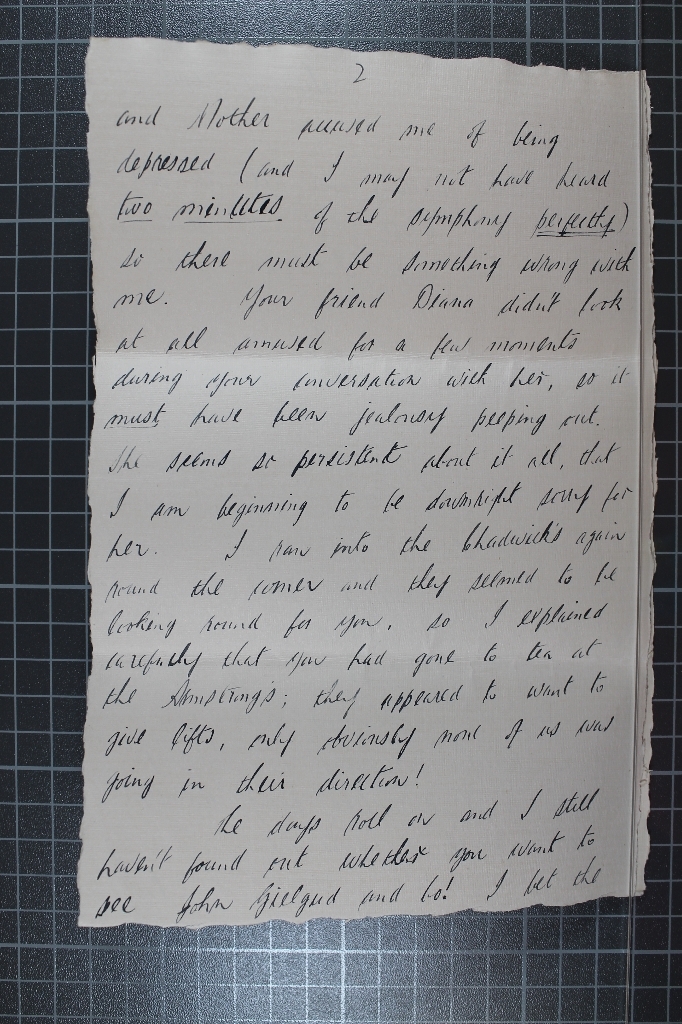 2
and Mother accused me of being
depressed (and I may not have heard
two minutes of the symphony perfectly)
so there must be something wrong with
me. Your friend Diana didn't look
at all amused for a few moments
during your conversation with her, so it
must have been jealousy peeping out.
She seems so persistent about it all, that
I am beginning to be downright sorry for
her. I ran into the Chadwicks again
round the corner and they seemed to be
looking round for you, so I explained
carefully that you had gone to tea at
the Armstrongs; they appeared to want to
give lifts, only obviously none of us was
going in their direction!
The days roll on and I still
haven't found out whether you want to
see John Gielgud and Co! I bet the